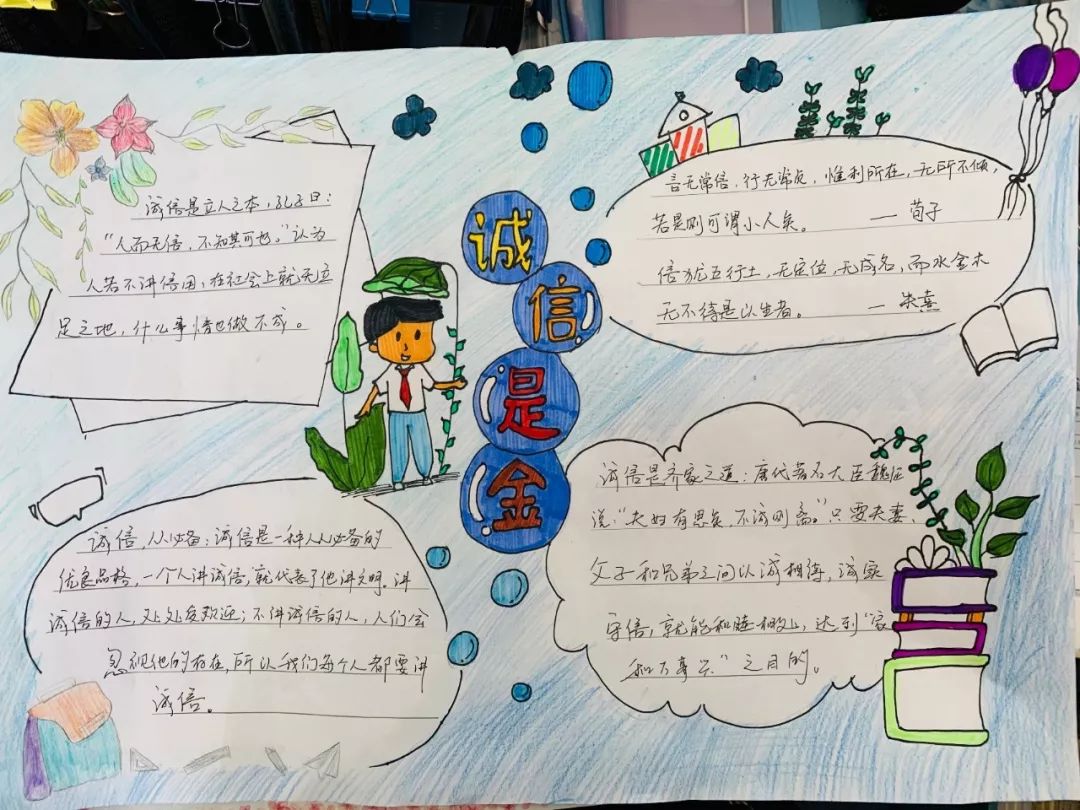 诚信是立人之本，孔子曰：
“人而无信，不知其可也。”认为
人若不讲信用，在社会上就无立
足之地，什么事情也做不成。
诚
信
是
金
言无常信，行无常贞，惟利所在，无所不倾，
若是则可谓小人矣。 — 荀子
信犹五行土，无定位，无成名，而水金木
无不待是以生者。 — 朱熹
诚信，人人必备：诚信是一种人人必备的
优良品格，一个人讲诚信，就代表了他讲文明。讲
诚信的人，处处受欢迎；不讲诚信的人，人们会
忽视他的存在，所以我们每个人都要讲
诚信。
诚信是齐家之道：唐代著名大臣魏征
说：“夫妇有恩矣，不诚则离。”只要夫妻、
父子和兄弟之间以诚相待，诚实
守信，就能和睦相处，达到“家
和万事兴”之目的。